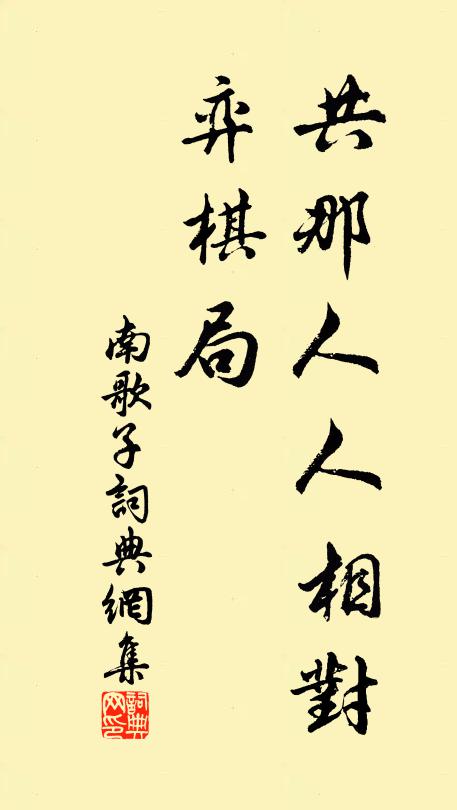 共那人人相對
弈棋局
南歌子詞典網集
詞典網印